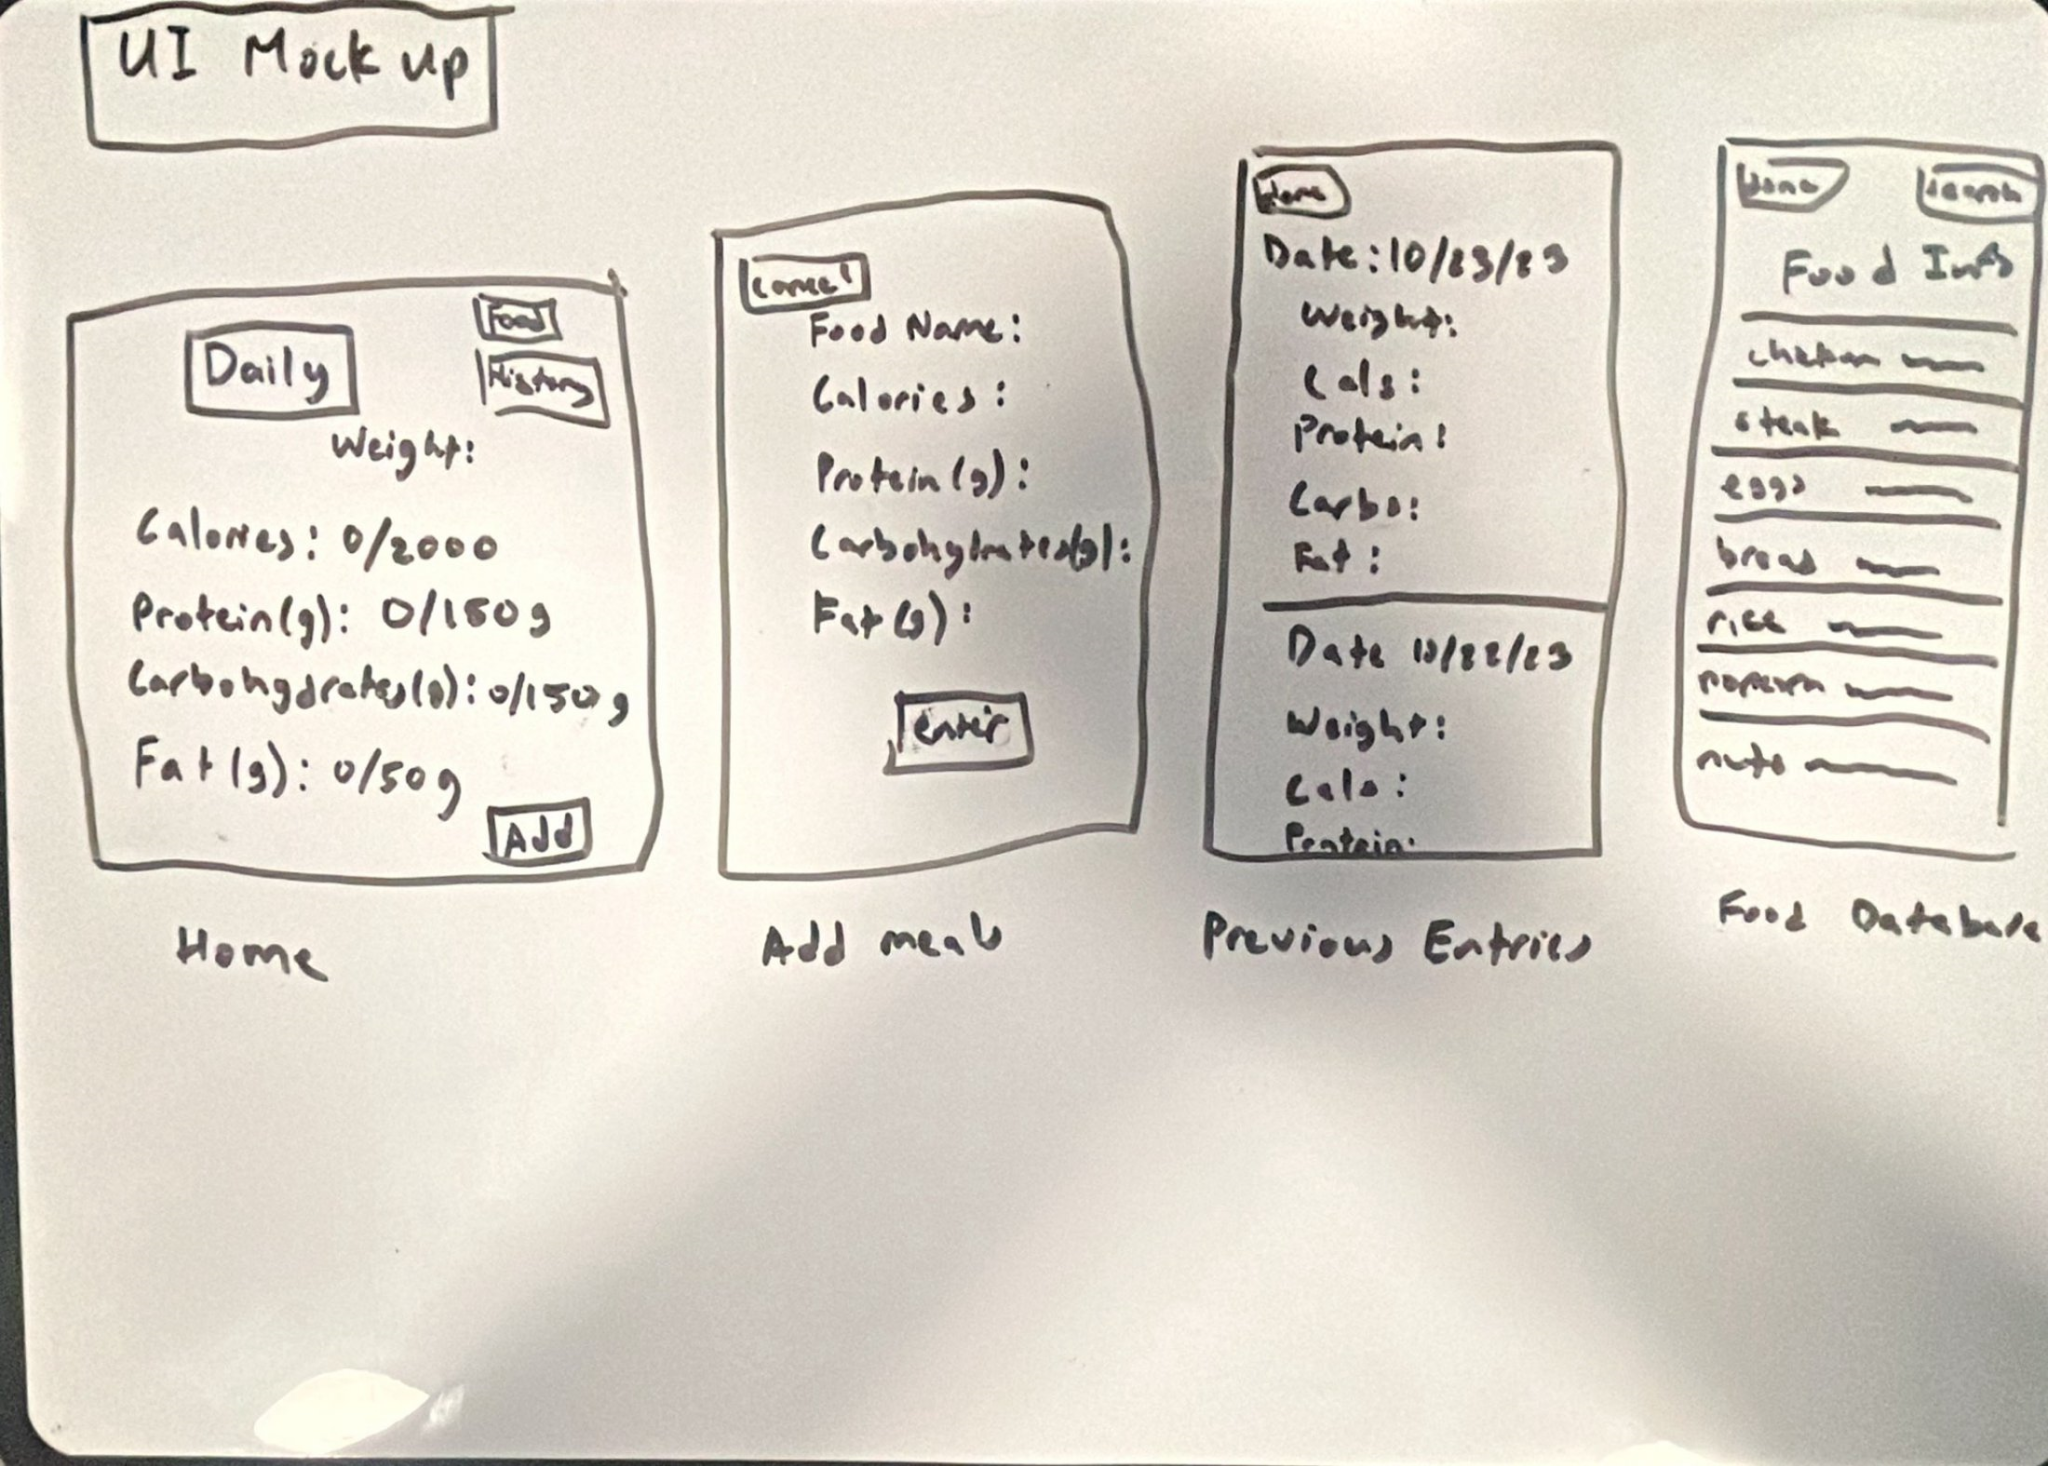 UI Mock up
Food
Daily
History
Weight:
Calories: 0/2000
Protein(g): 0/150g
Carbohydrates(g): 0/150g
Fat(g): 0/50g
Add
Home
Cancel
Food Name:
Calories:
Protein(g):
Carbohydrates(g):
Fat(g):
enter
Add meals
Home
Date: 10/23/23
Weight:
Cals:
Protein:
Carbs:
Fat:
Date 10/22/23
Weight:
Cals:
Protein:
Previous Entries
Home
Search
Food Info
chicken
steak
eggs
bread
rice
popcorn
nuts
Food Database